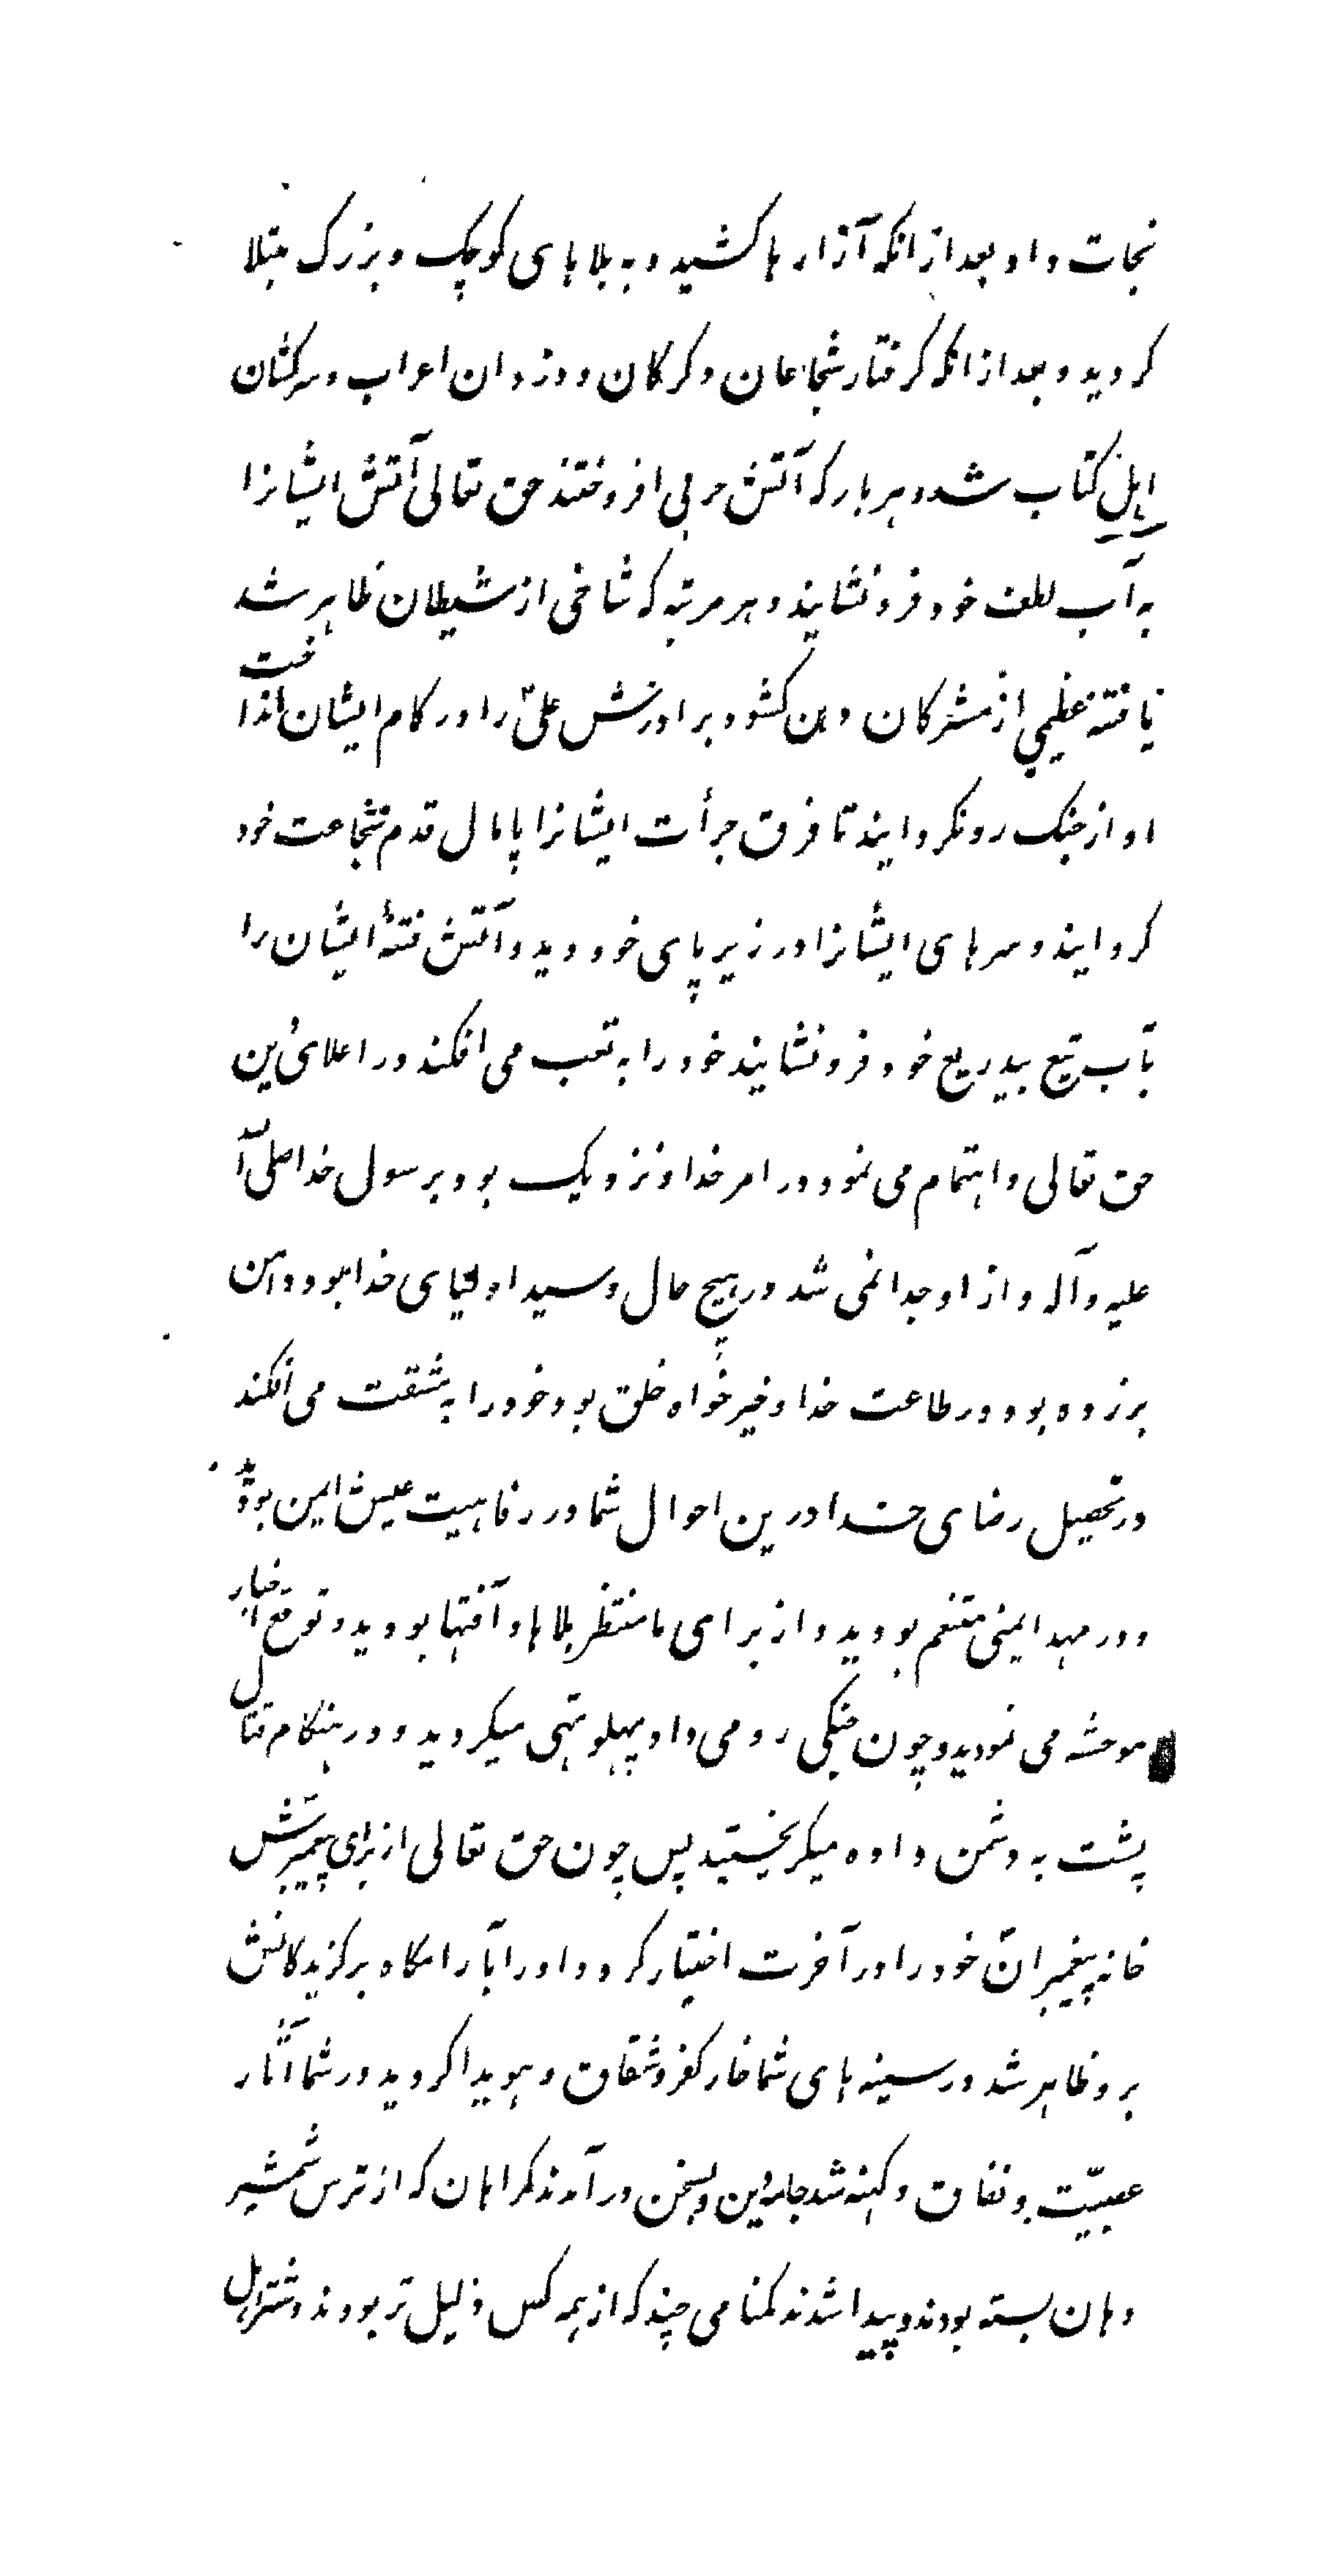 نجات داد و بعد از انکه آزارها کشید و به بلاهای کوچک و بزرک مبتلا
کردید و بعد از انکه کرفتار شجاعان و کرکان و دزدان اعراب و سرکشان
اهل کتاب شد و هر بار که آتش حربی افروختند حق تعالی آتش ایشانرا
به آب لطف خود فرونشانید و هر مرتبه که شاخی از شیطان ظاهر شد
یا فتنه عظیمی از مشرکان دهن کشود برادرش علی را در کام ایشان انداخت
او از جنک رو نکردانید تا فرق جرأت ایشانرا پامال قدم شجاعت خود
کردانید و سرهای ایشانرا در زیر پای خود دید و آتش فتنهٔ ایشان را
بآب تیغ بیدریغ خود فرونشانید خود را به تعب می افکند در اعلای دین
حق تعالی و اهتمام می نمود در امر خدا و نزدیک بود برسول خدا صلی الله
علیه وآله و از او جدا نمی شد در هیچ حال و سید اولیای خدا بود و دامن
بر زده بود در طاعت خدا و خیر خواه خلق بود و خود را به مشقت می افکند
در تحصیل رضای خدا درین احوال شما در رفاهیت عیش ایمن بودید
و در مهد ایمنی متنعم بودید و از برای ما منتظر بلاها و آفتها بودید و توقع اخبار
موحشه می نمودید و چون جنکی رو می داد پهلو تهی میکردید و در هنکام قتال
پشت به دشمن داده میکریختید پس چون حق تعالی از برای پیغمبرش
خانه پیغمبران خود را در آخرت اختیار کرد و او را آبارامکاه برکزیدکانش
برد ظاهر شد در سینه های شما خار کفر و شقاق و هویدا کردید در شما آثار
عصبیّت و نفاق و کهنه شد جامهٔ دین و بسخن در آمدند کمراهان که از ترس شمشیر
دهان بسته بودند و پیدا شدند کمنامی چند که از همه کس ذلیل تر بودند و شتر اهل